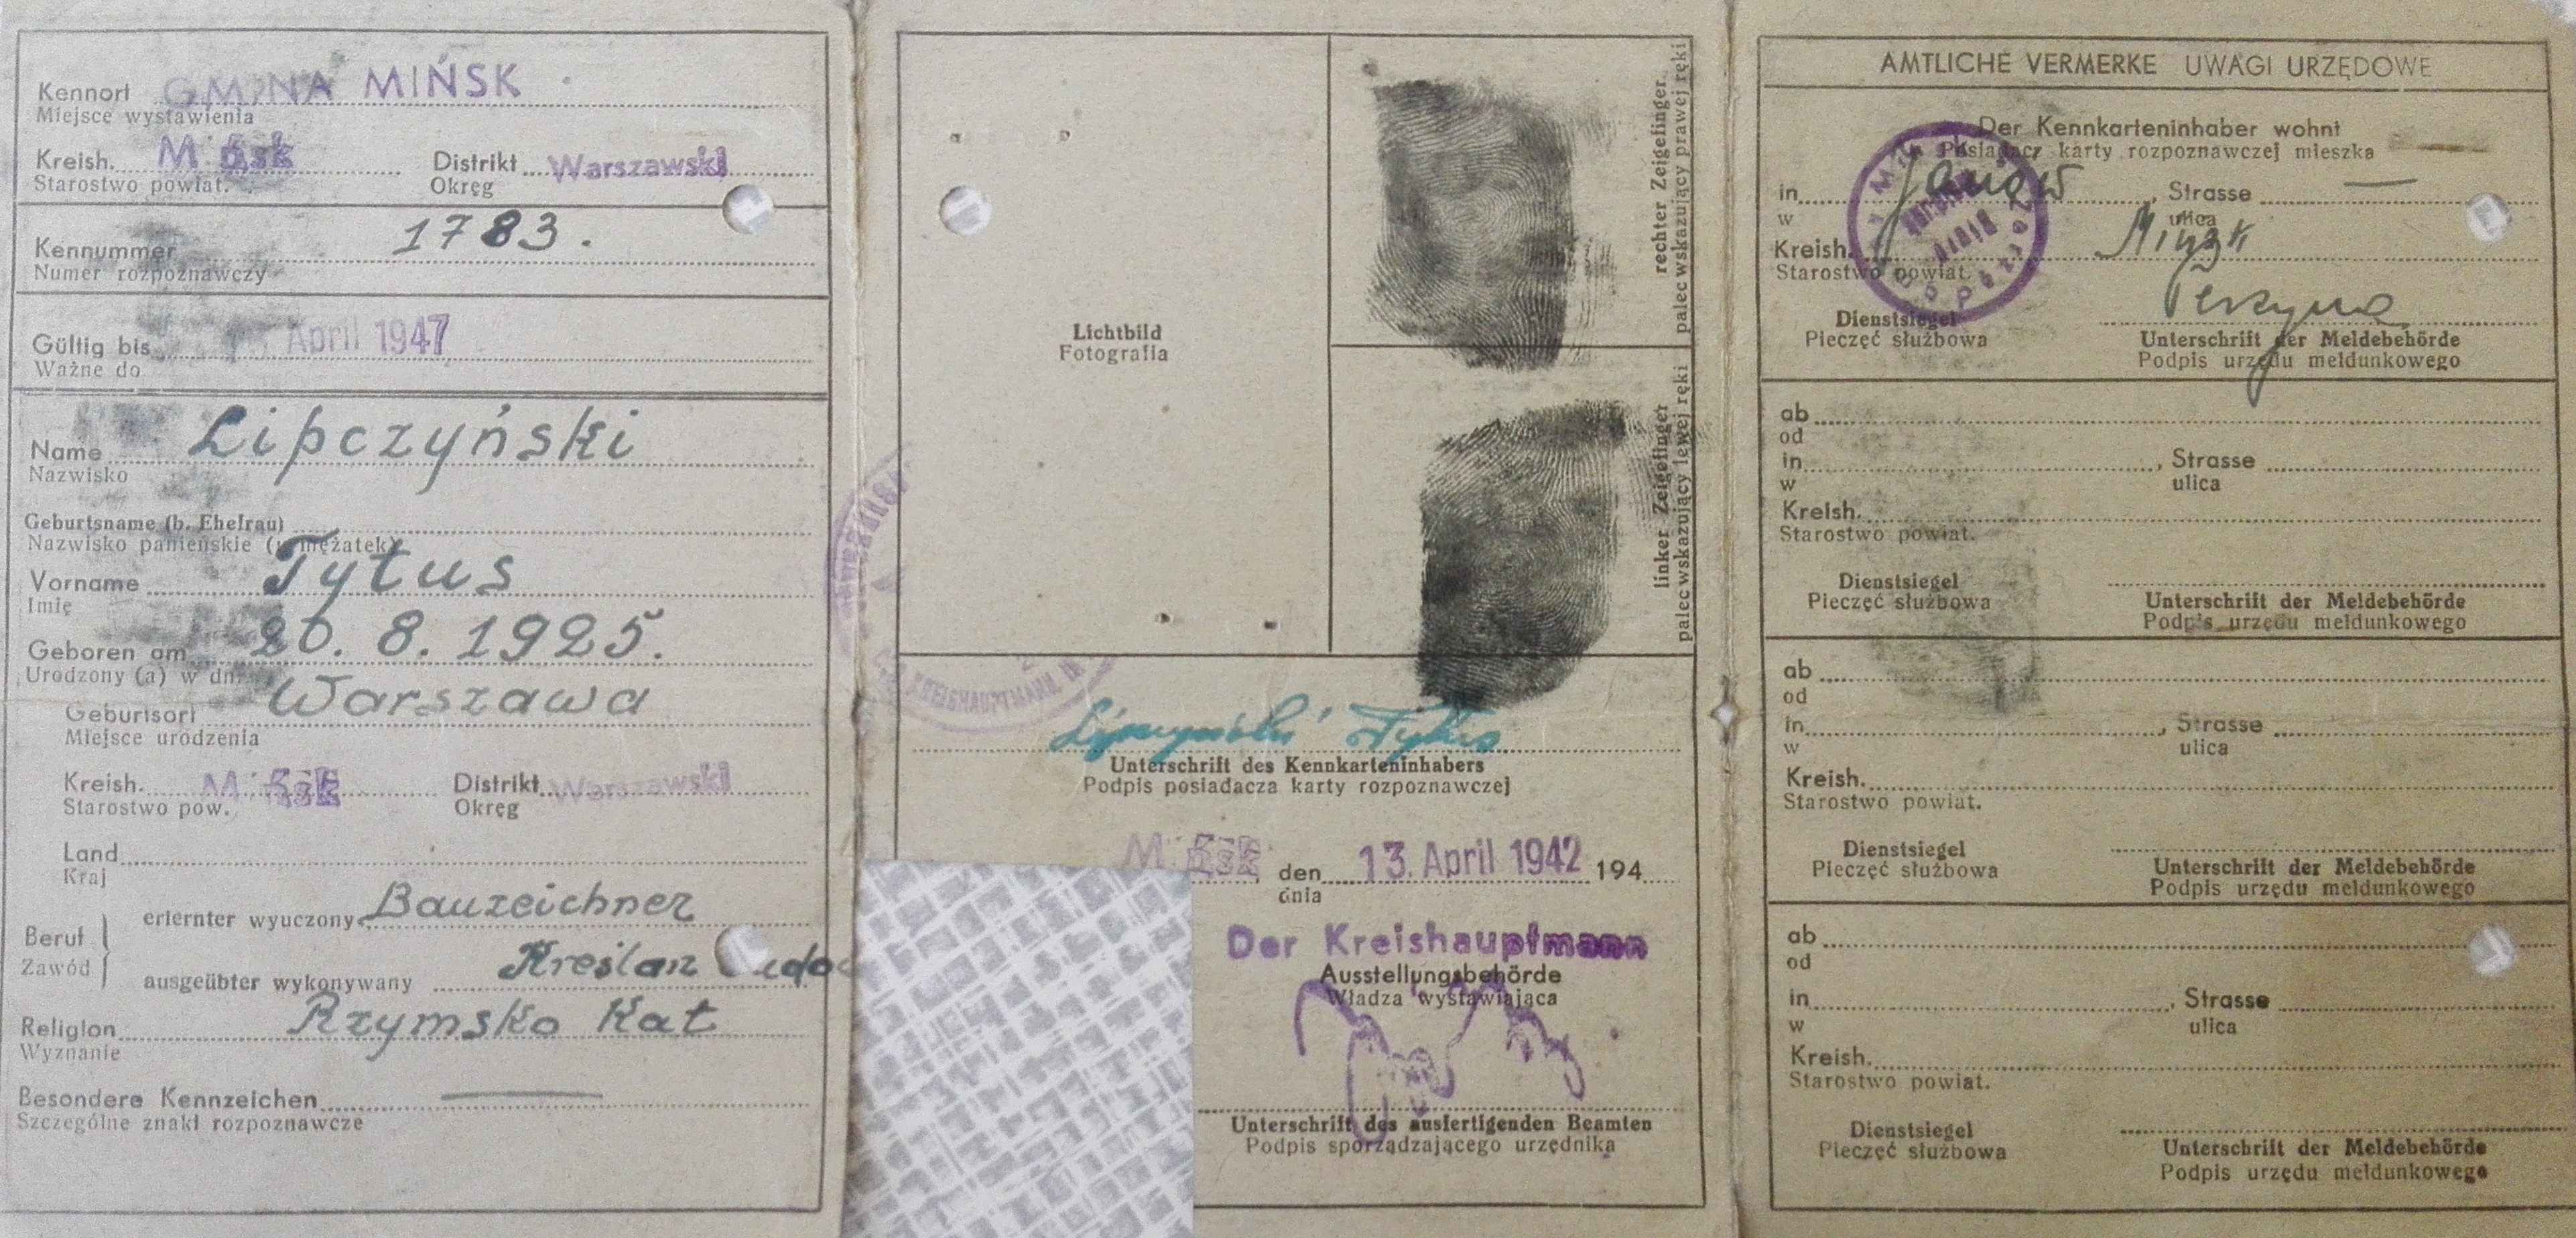 Kennort GMINA MIŃSK
Miejsce wystawienia
Kreish. Mińsk Distrikt Warszawski
Starostwo powiat. Okręg
Kennummer 1783.
Numer rozpoznawczy
Gültig bis April 1947
Ważne do
Name Lipczyński
Nazwisko
Geburtsname (b. Ehefrau)
Nazwisko panieńskie (u mężatek)
Vorname Tytus
Imię
Geboren am 20. 8. 1925.
Urodzony (a) w dn.
Geburtsort Warszawa
Miejsce urodzenia
Kreish. Mińsk Distrikt Warszawski
Starostwo pow. Okręg
Land
Kraj
Beruf erlernter wyuczony Bauzeichner
Zawód ausgeübter wykonywany Kreślarz
Religion Rzymsko Kat
Wyznanie
Besondere Kennzeichen
Szczególne znaki rozpoznawcze
Lichtbild
Fotografia
rechter Zeigefinger
palec wskazujący prawej ręki
linker Zeigefinger
palec wskazujący lewej ręki
KREISHAUPTMANN
Lipczyński Tytus
Unterschrift des Kennkarteninhabers
Podpis posiadacza karty rozpoznawczej
Mińsk, den 13. April 1942 194
dnia
Der Kreishauptmann
Ausstellungsbehörde
Władza wystawiająca
Unterschrift des ausfertigenden Beamten
Podpis sporządzającego urzędnika
AMTLICHE VERMERKE UWAGI URZĘDOWE
Der Kennkarteninhaber wohnt
Posiadacz karty rozpoznawczej mieszka
in Janów, Strasse —
w ulica
Kreish. Mińsk
Starostwo powiat.
Dienstsiegel Unterschrift der Meldebehörde
Pieczęć służbowa Podpis urzędu meldunkowego
ab
od
in, Strasse
w ulica
Kreish.
Starostwo powiat.
Dienstsiegel Unterschrift der Meldebehörde
Pieczęć służbowa Podpis urzędu meldunkowego
ab
od
in, Strasse
w ulica
Kreish.
Starostwo powiat.
Dienstsiegel Unterschrift der Meldebehörde
Pieczęć służbowa Podpis urzędu meldunkowego
ab
od
in, Strasse
w ulica
Kreish.
Starostwo powiat.
Dienstsiegel Unterschrift der Meldebehörde
Pieczęć służbowa Podpis urzędu meldunkowego